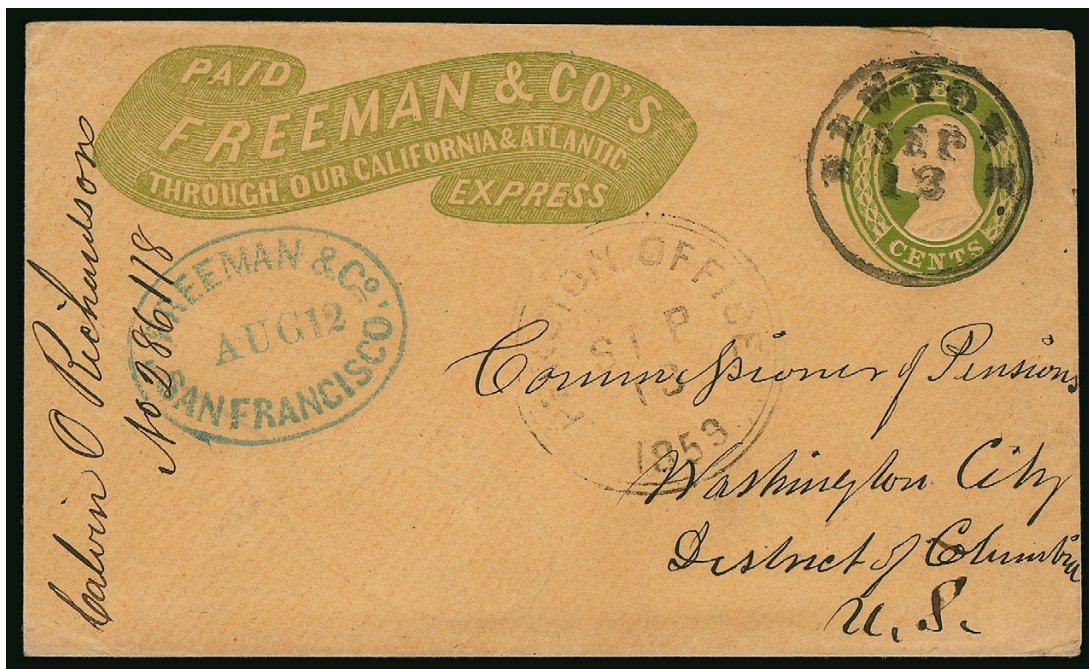 PAID
FREEMAN & CO'S
THROUGH OUR CALIFORNIA & ATLANTIC
EXPRESS
NEW-YORK
SEP
13
CENTS
FREEMAN & Co'
AUG 12
SAN FRANCISCO
PENSION OFFICE
SEP
13
1859
Calvin O Richardson
No 286118
Commissioner of Pensions
Washington City
District of Columbia
U. S.